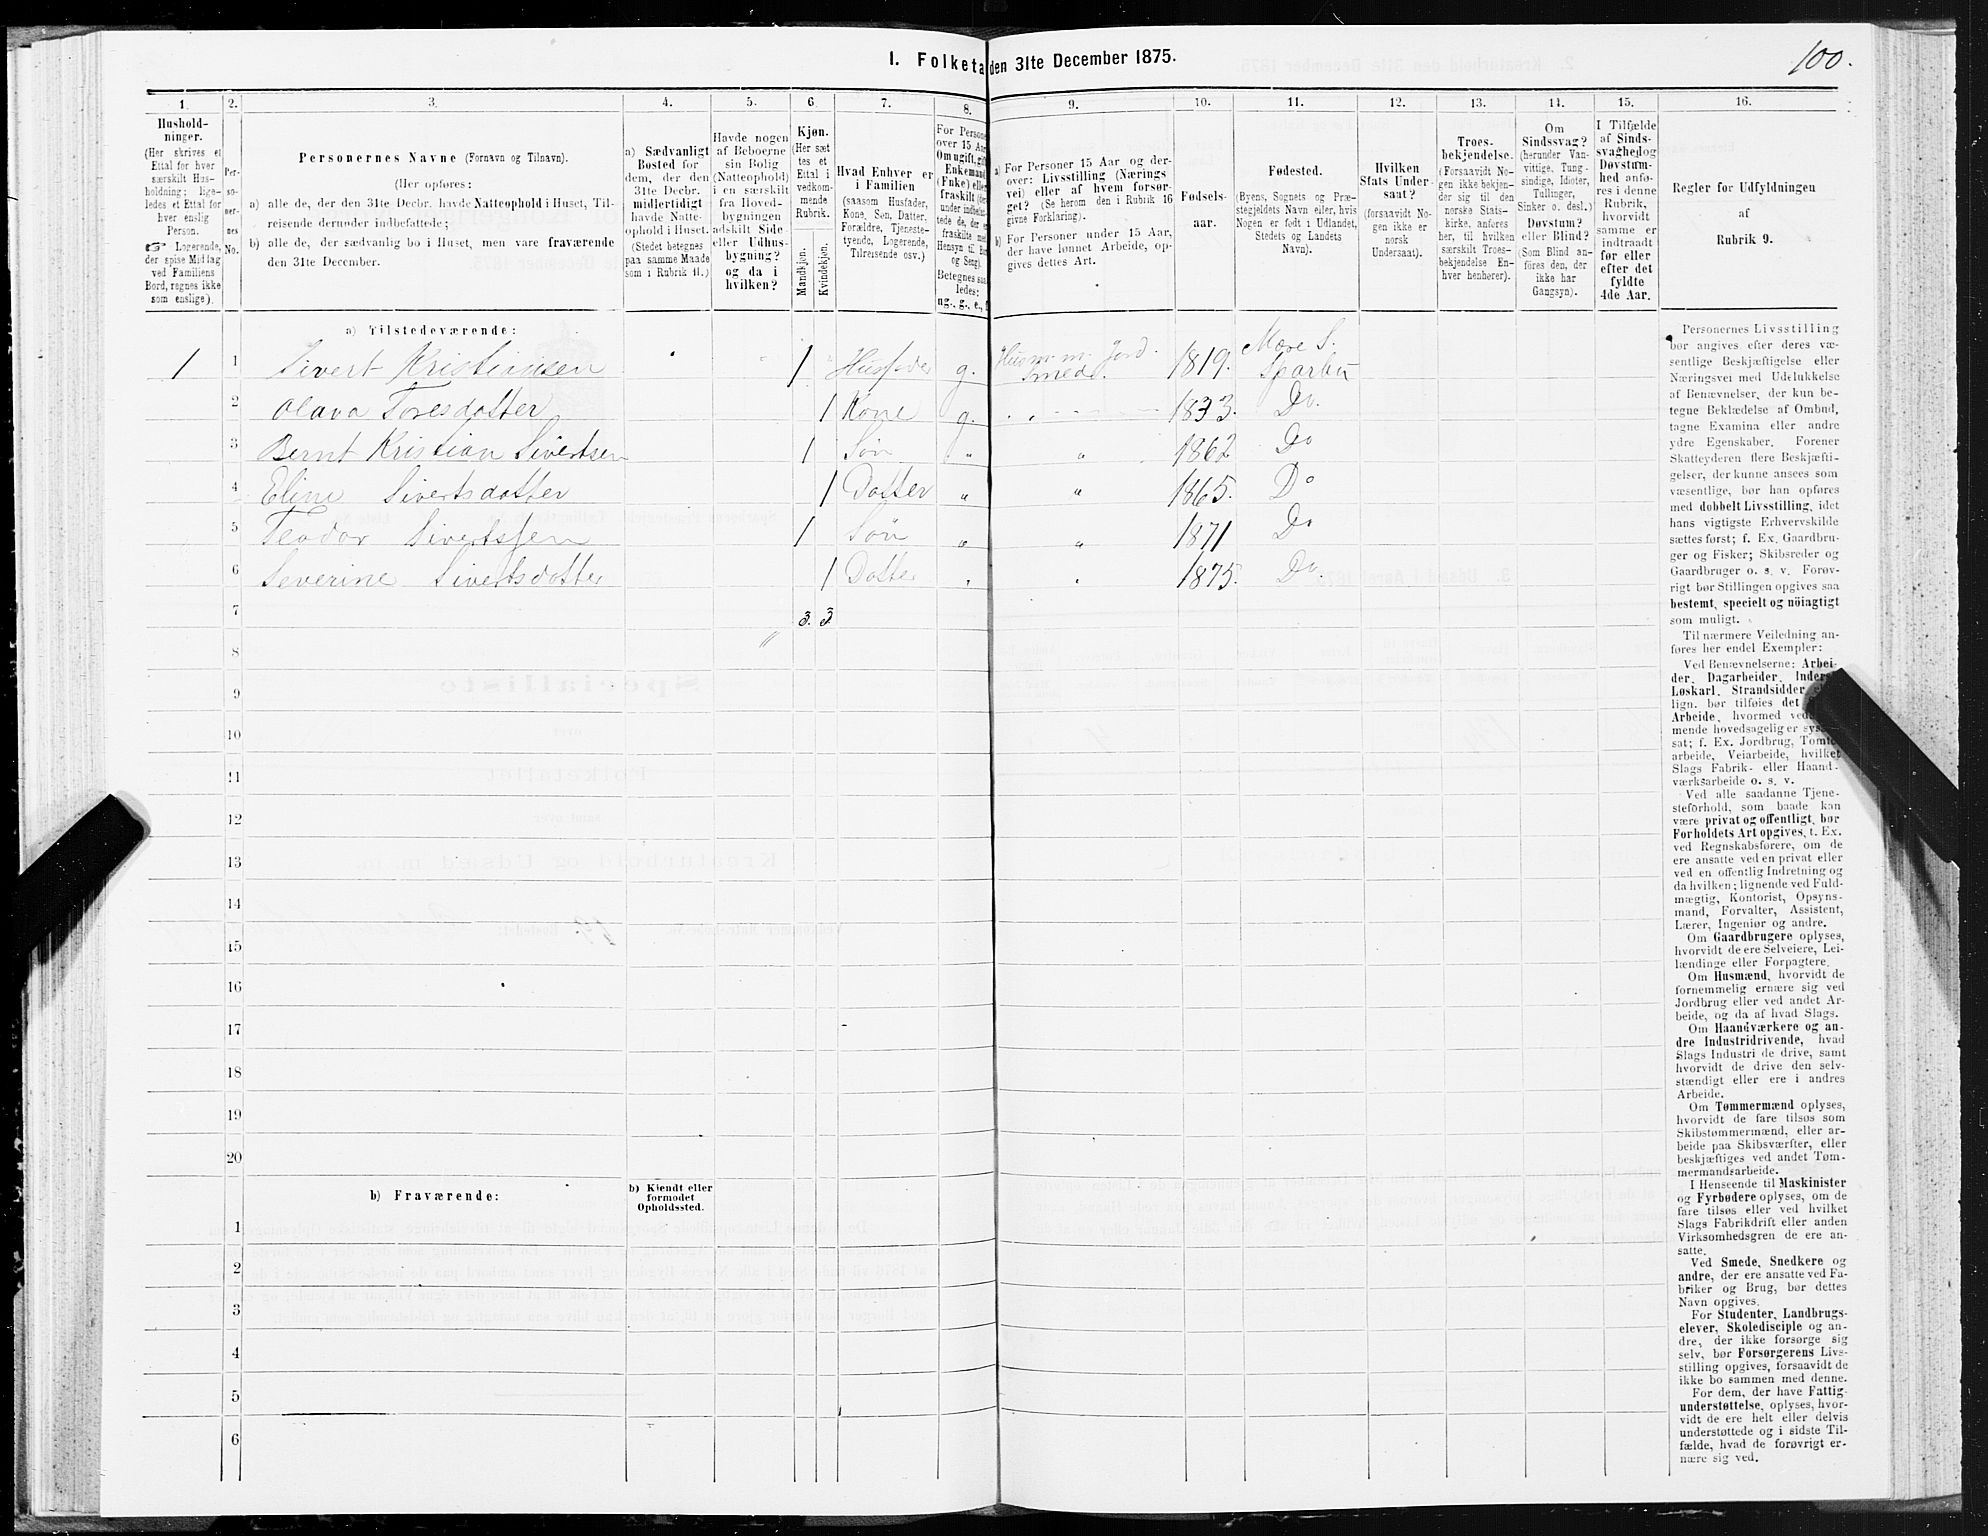 100.
1. Folketa den 31te December 1875.
1. 2. 3. 4. 5. 6. 7. 8. 9. 10. 11. 12. 13. 14. 15. 16.
Hushold-
ninger.
(Her skrives et
Ettal for hver
særskilt Hus-
holdning; lige-
ledes et Ettal for
hver enslig
Person.
☞ Logerende,
der spise Middag
ved Familiens
Bord, regnes ikke
som enslige).
Per-
so-
ner-
nes
No.
Personernes Navne (Fornavn og Tilnavn).
(Her opføres:
a) alle de, der den 31te Decbr. havde Natteophold i Huset, Til-
reisende derunder indbefattede;
b) alle de, der sædvanlig bo i Huset, men vare fraværende
den 31te December.
a) Sædvanligt
Bosted for
dem, der den
31te Decbr.
midlertidigt
havde Natte-
ophold i Huset.
(Stedet betegnes
paa samme Maade
som i Rubrik 11.)
Havde nogen
af Beboerne
sin Bolig
(Natteophold)
i en særskilt
fra Hoved-
bygningen
adskilt Side-
eller Udhus-
bygning?
og da i
hvilken?
Kjøn.
(Her sæt
tes et
Ettal i
vedkom-
mende
Rubrik.
Mandkjøn.
Kvindekjøn.
Hvad Enhver er
i Familien
(saasom Husfader,
Kone, Søn, Datter,
Forældre, Tjeneste-
tyende, Logerende,
Tilreisende osv.)
For Persone
over 15 Aar
Om ugift, gift
Enkemand
(Enke) elle
fraskilt
og Seng).
Betegnes saa
ledes:
ug., g., e., f
a) For Personer 15 Aar og der-
over: Livsstilling (Nærings
vei) eller af hvem forsør-
get? (Se herom den i Rubrik 16
givne Forklaring).
b) For Personer under 15 Aar,
der have lønnet Arbeide, op-
gives dettes Art.
Fødsels-
aar.
Fødested.
(Byens, Sognets og Præ-
stegjeldets Navn eller, hvis
Nogen er født i Udlandet,
Stedets og Landets
Navn).
Hvilken
Stats Under-
saat?
(forsaavidt No-
gen ikke er
norsk
Undersaat).
Troes-
bekjendelse.
(Forsaavidt No-
gen ikke bekjen-
der sig til den
norske Stats-
kirke, anføres
her, til hvilken
særskilt Troes-
bekjendelse En-
hver henhører).
Om
Sindssvag?
(herunder Van-
vittige, Tung-
sindige, Idioter,
Tullinger,
Sinker o. desl.)
Døvstum?
eller Blind?
(Som Blind an-
føres den, der
ikke har
Gangsyn).
I Tilfælde
af Sinds-
svaghed og
Døvstum-
hed anfø-
res i denne
Rubrik,
hvorvidt
samme er
indtraadt
før eller
efter det
fyldte
4de Aar.
Regler for Udfyldningen
af
Rubrik 9.
a) Tilstedeværende:
1 1 Sivert Kristiansen 1 Husfader g. Husm. m. Jord. Smed. 1819. Mære S. Sparbu
2 Olava Toresdatter 1 Kone g. 1833. Do.
3 Bernt Kristian Sivertsen 1 Søn " " 1862 Do
4 Eline Sivertsdatter 1 Datter " " 1865. Do
5 Teodor Sivertssen 1 Søn " " 1871 Do
6 Severine Sivertsdatter 1 Datter " " 1875. Do.
7 3. 3.
8
9
10
11
12
13
14
15
16
17
18
19
20
b) Fraværende:
b) Kjendt eller
formodet
Opholdssted.
1
2
3
4
5
6
Personernes Livsstilling
bør angives efter deres væ-
sentlige Beskjæftigelse eller
Næringsvei med Udelukkelse
af Benævnelser, der kun be-
tegne Beklædelse af Ombud,
tagne Examina eller andre
ydre Egenskaber. Forener
Skatteyderen flere Beskjæfti-
gelser, der kunne ansees som
væsentlige, bør han opføres
med dobbelt Livsstilling, idet
hans vigtigste Erhvervskilde
sættes først; f. Ex. Gaardbru-
ger og Fisker; Skibsreder og
Gaardbruger o. s. v. Forøv-
rigt bør Stillingen opgives saa
bestemt, specielt og nöiagtigt
som muligt.
Til nærmere Veiledning an-
føres her endel Exempler:
Ved Benævnelserne: Arbei-
der, Dagarbeider, Inders
Løskarl, Strandsidder
lign. bør tilføies det
Arbeide, hvormed ved
mende hovedsagelig er sys
sat; f. Ex. Jordbrug, Tomt
arbeide, Veiarbeide, hvilket
Slags Fabrik- eller Haand-
værksarbeide o. s. v.
Ved alle saadanne Tjene-
steforhold, som baade kan
være privat og offentligt, bør
Forholdets Art opgives, t. Ex.
ved Regnskabsførere, om de
ere ansatte ved en privat eller
ved en offentlig Indretning og
da hvilken; lignende ved Fuld-
mægtig, Kontorist, Opsyns-
mand, Forvalter, Assistent,
Lærer, Ingeniør og andre.
Om Gaardbrugere oplyses,
hvorvidt de ere Selveiere, Lei-
lændinge eller Forpagtere.
Om Husmænd, hvorvidt de
fornemmelig ernære sig ved
Jordbrug eller ved andet Ar-
beide, og da af hvad Slags.
Om Haandværkere og an-
dre Industridrivende, hvad
Slags Industri de drive, samt
hvorvidt de drive den selv-
stændigt eller ere i andres
Arbeide.
Om Tømmermænd oplyses,
hvorvidt de fare tilsøs som
Skibstømmermænd, eller ar-
beide paa Skibsværfter, eller
beskjæftiges ved andet Tøm-
mermandsarbeide.
I Henseende til Maskinister
og Fyrbødere oplyses, om de
fare tilsøs eller ved hvilket
Slags Fabrikdrift eller anden
Virksomhedsgren de ere an-
satte.
Ved Smede, Snedkere og
andre, der ere ansatte ved Fa-
briker og Brug, bør dettes
Navn opgives.
For Studenter, Landbrugs-
elever, Skoledisciple og an-
dre, der ikke forsørge sig
selv, bør Forsørgerens Livs-
stilling opgives, forsaavidt de
ikke bo sammen med denne.
For dem, der have Fattig-
understøttelse, oplyses, hvor-
vidt de ere helt eller delvis
understøttede og i sidste Til-
fælde, hvad de forøvrigt er-
nære sig ved.